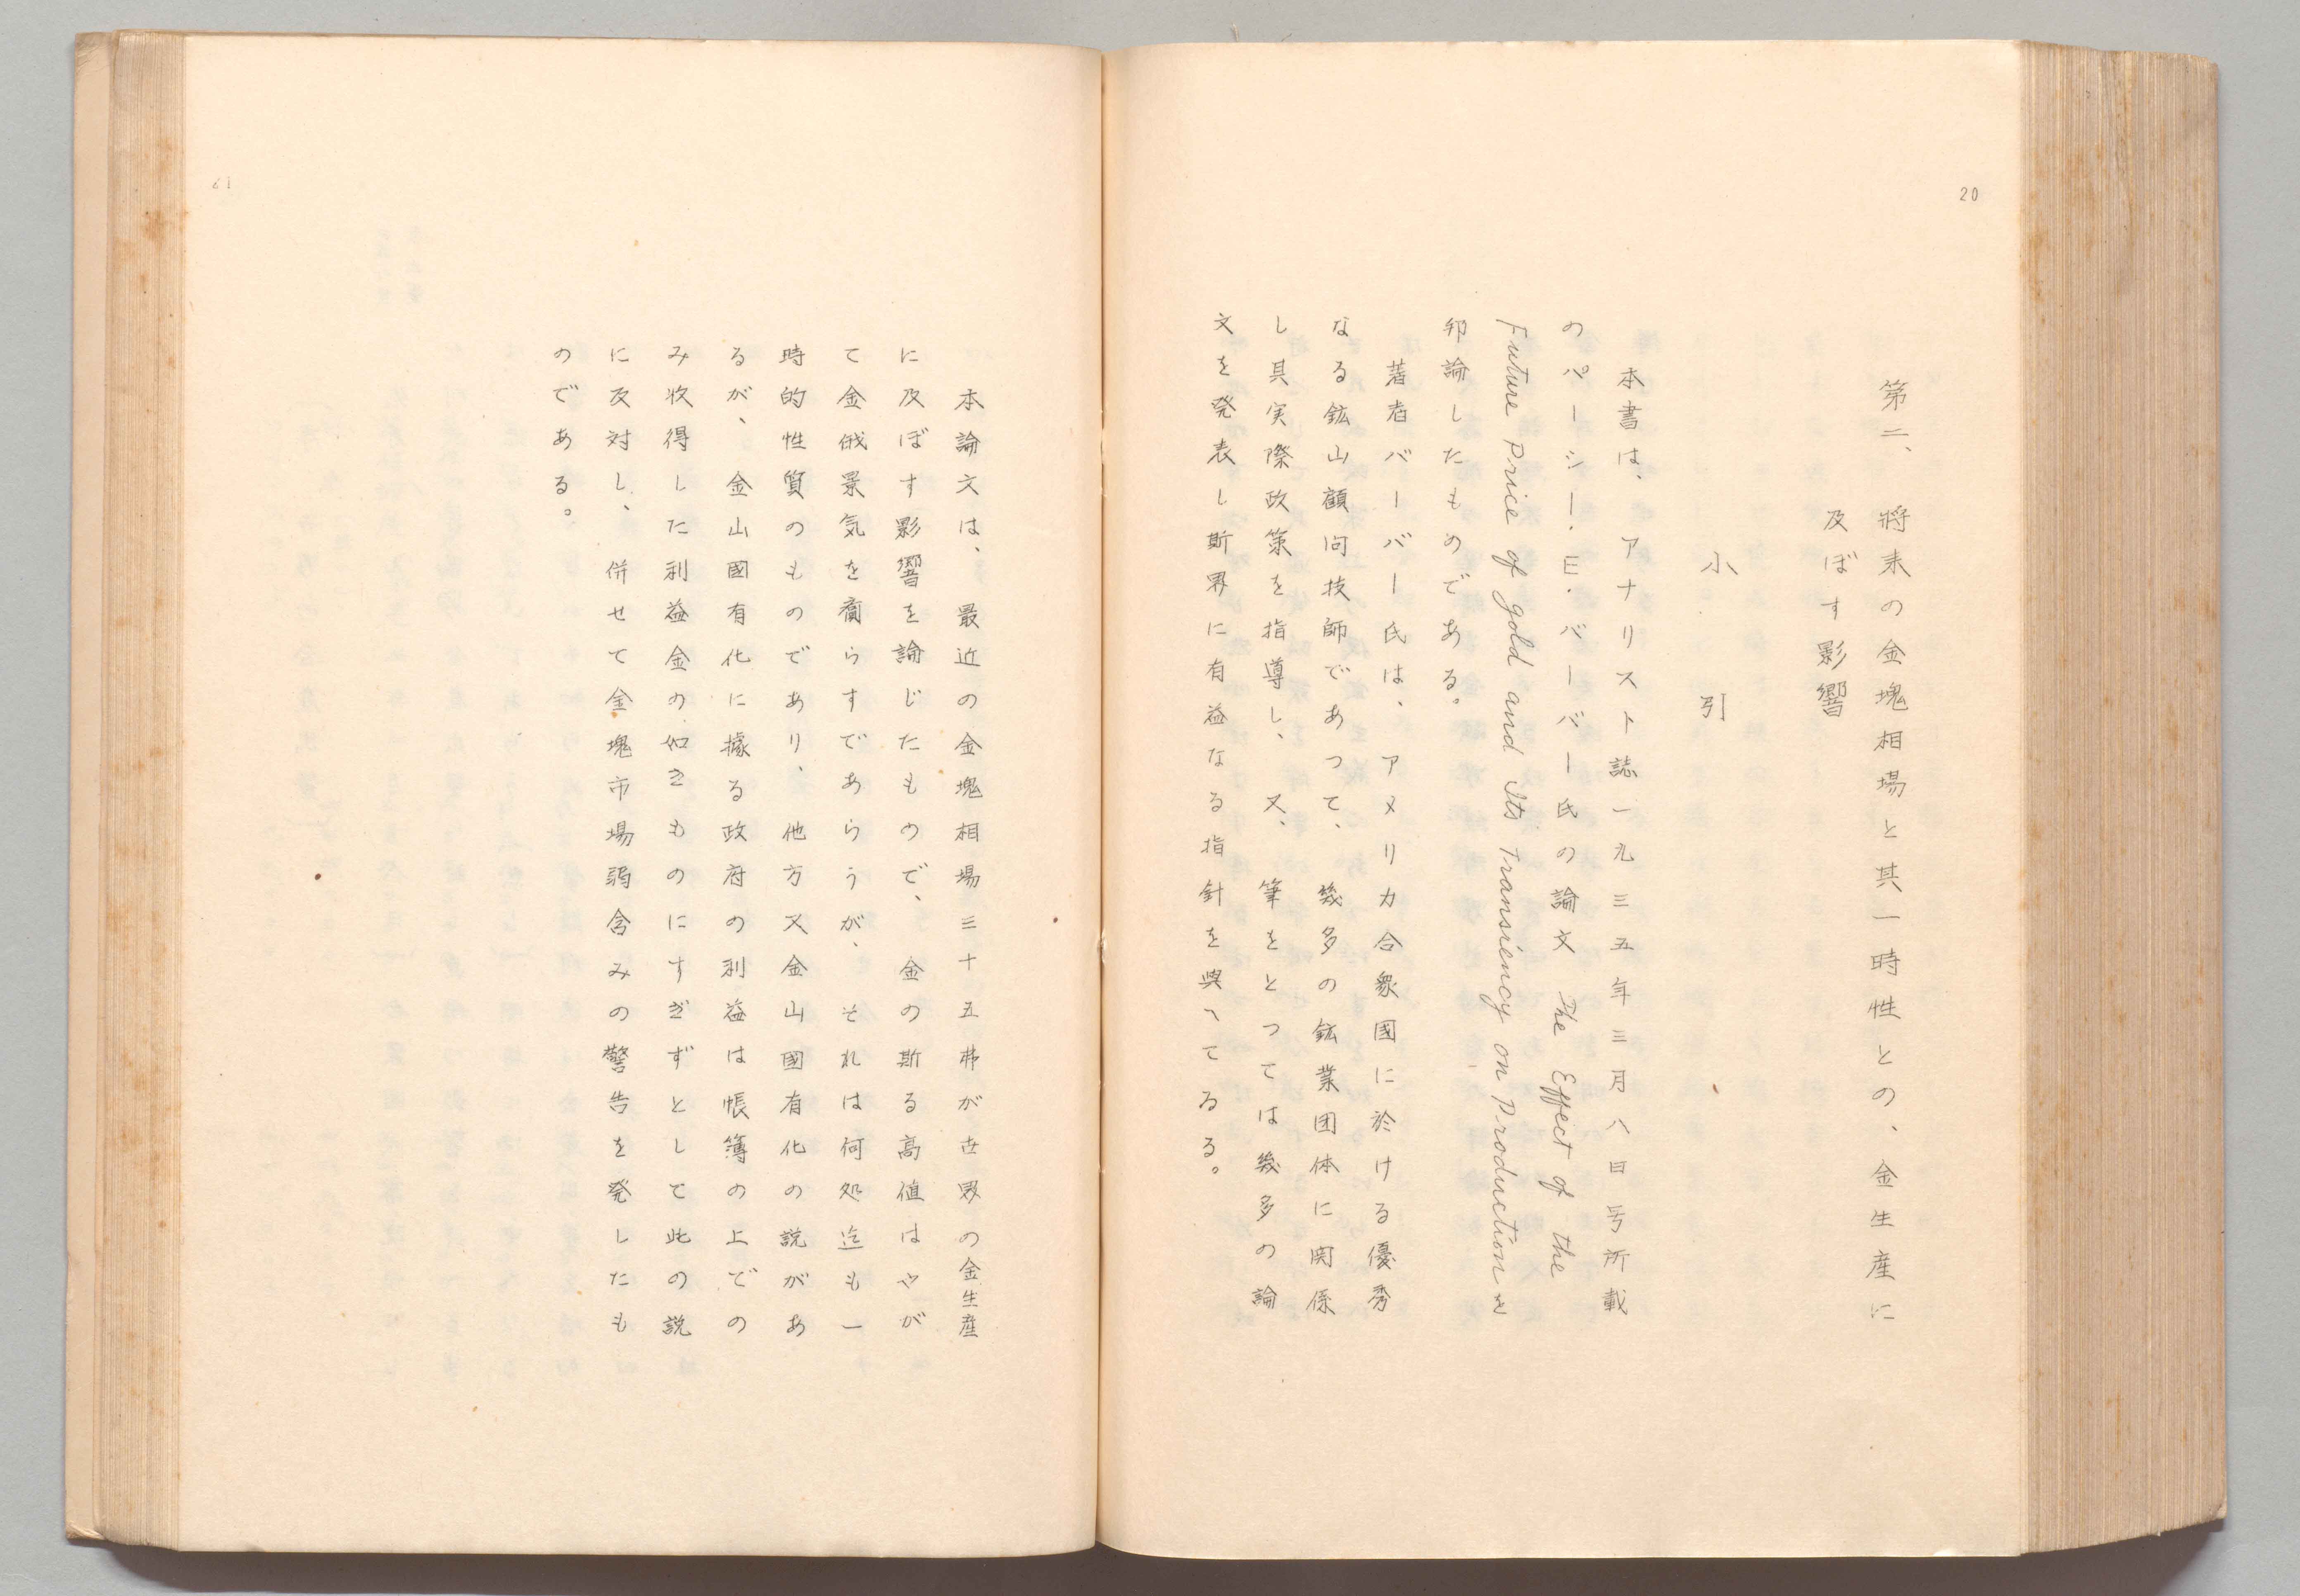 20
第二、将来の金塊相場と其一時性との、金生産に
及ぼす影響
小引
本書は、アナリスト誌一九三五年三月八日号所載
のパーシー・E・バーバー氏の論文 The Effect of the
Future Price of gold and Its Transiency on Productionを
邦論したものである。
著者バーバー氏は、アメリカ合衆國に於ける優秀
なる鉱山顧问技師であつて、幾多の鉱業団体に関係
し其実際政策を指導し、又、筆をとつては幾多の論
文を発表し斯界に有益なる指針を與へてゐる。
21
本論文は、最近の金塊相場三十五弗が世界の金生産
に及ぼす影響を論じたもので、金の斯る高値はやが
て金俄景気を齎らすであらうが、それは何処迄も一
時的性質のものであり、他方又金山國有化の説があ
るが、金山國有化に據る政府の利益は帳簿の上での
み收得した利益金の如きものにすぎずとして此の説
に反対し、併せて金塊市場弱含みの警告を発したも
のである。